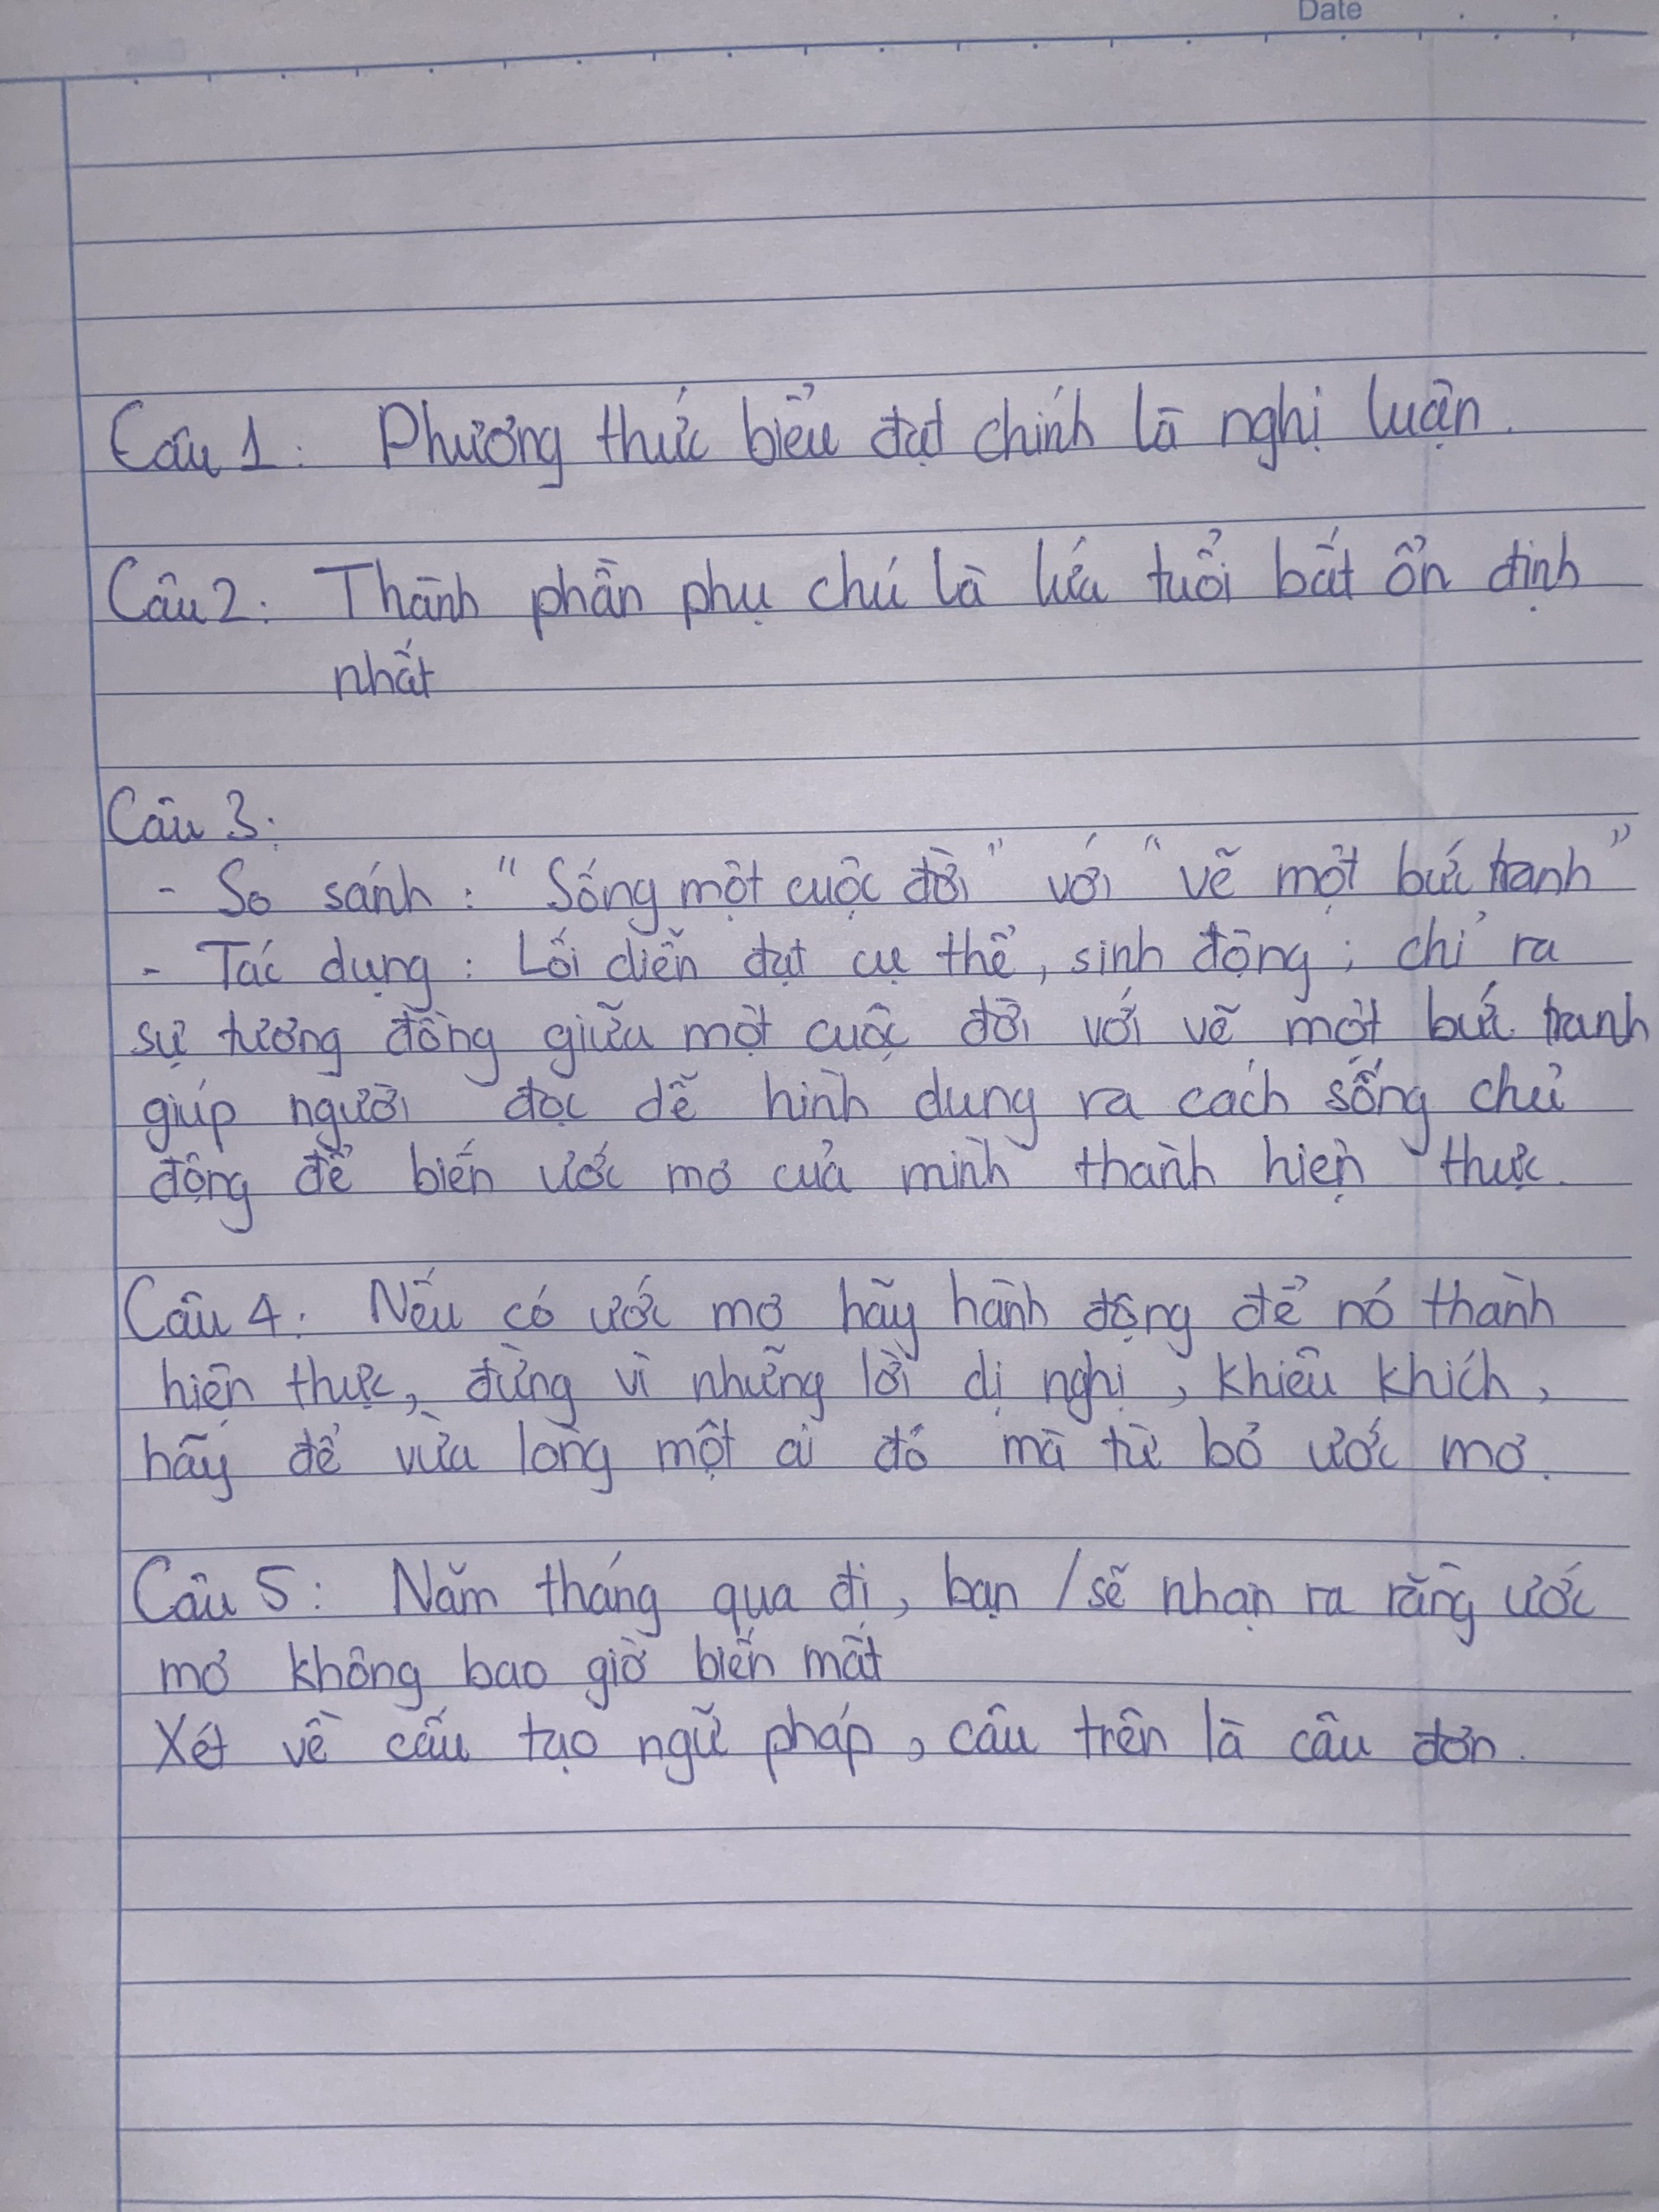 Date
Câu 1: Phương thức biểu đạt chính là nghị luận.
Câu 2: Thành phần phụ chú là lứa tuổi bất ổn định
nhất
Câu 3:
- So sánh: "Sống một cuộc đời" với "vẽ một bức tranh"
- Tác dụng: Lối diễn đạt cụ thể, sinh động; chỉ ra
sự tương đồng giữa một cuộc đời với vẽ một bức tranh
giúp người đọc dễ hình dung ra cách sống chủ
động để biến ước mơ của mình thành hiện thực.
Câu 4: Nếu có ước mơ hãy hành động để nó thành
hiện thực, đừng vì những lời dị nghị, khiêu khích,
hãy để vừa lòng một ai đó mà từ bỏ ước mơ.
Câu 5: Năm tháng qua đi, bạn / sẽ nhận ra rằng ước
mơ không bao giờ biến mất
Xét về cấu tạo ngữ pháp, câu trên là câu đơn.